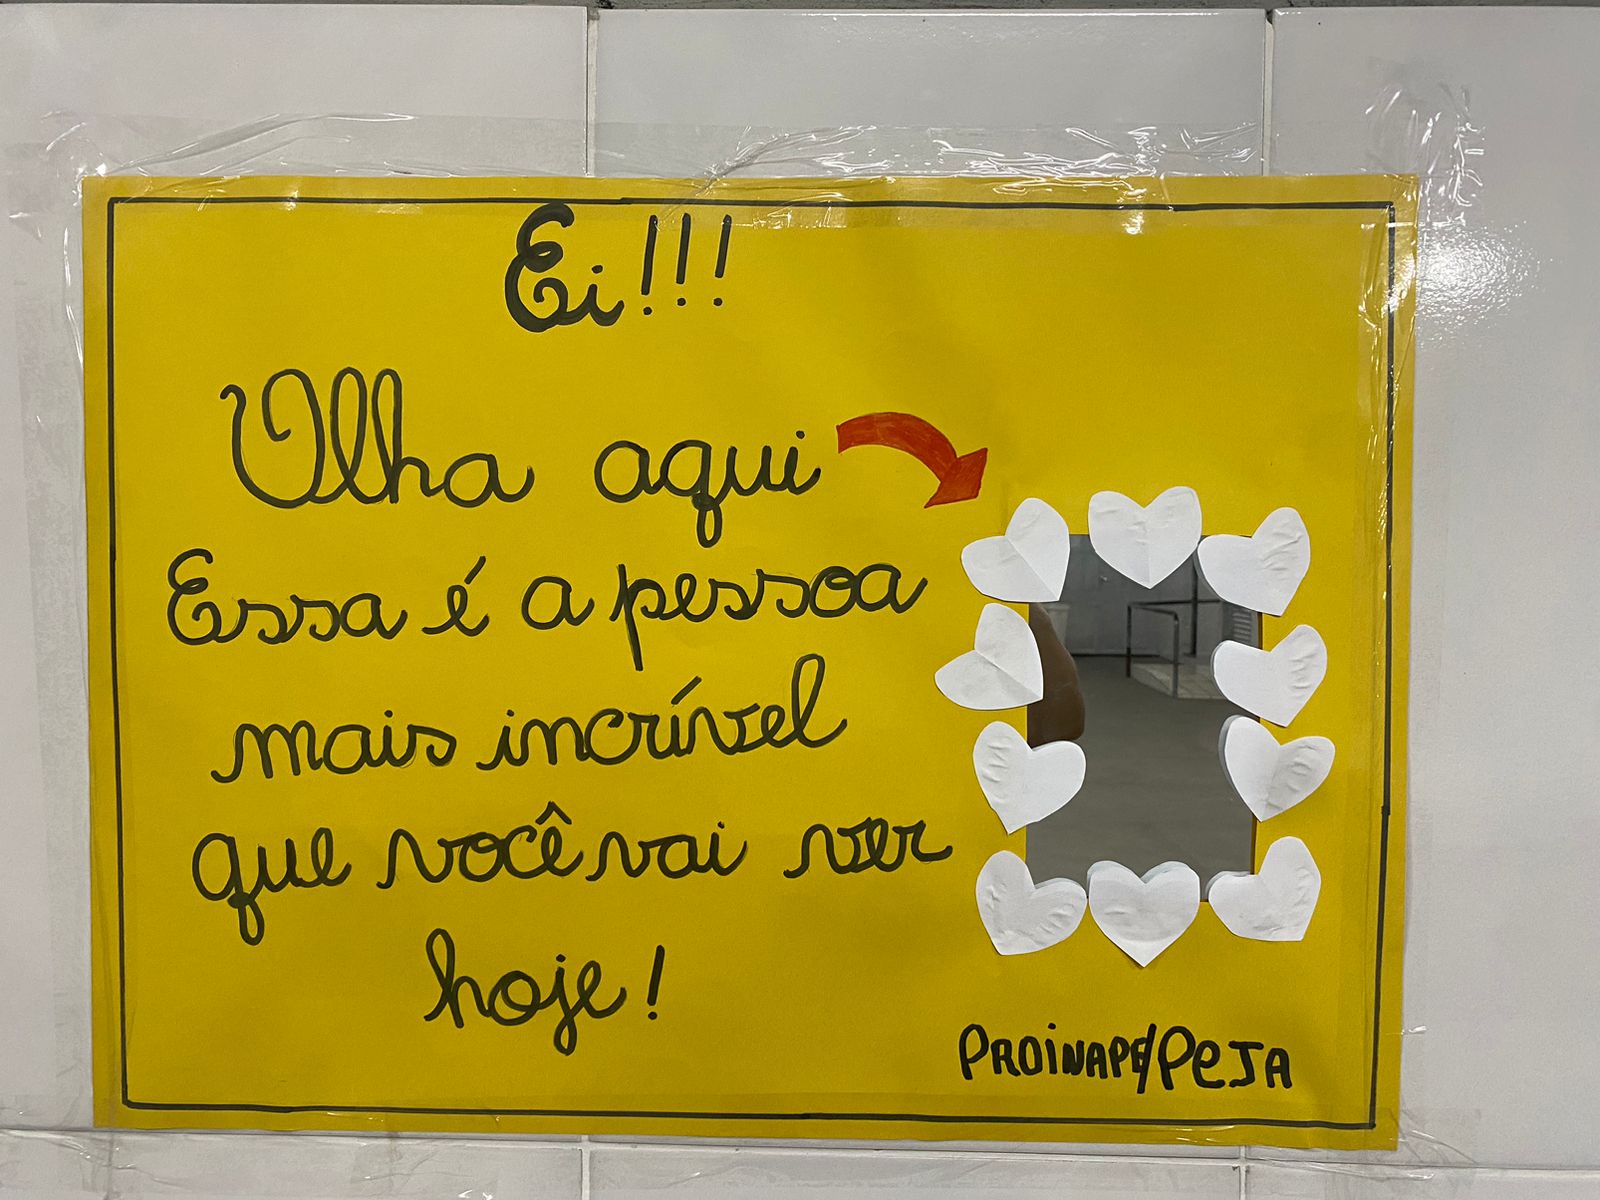 Ei!!!
Olha aqui
Essa é a pessoa
mais incrível
que você vai ver
hoje!
PROiNAPE/PeJA